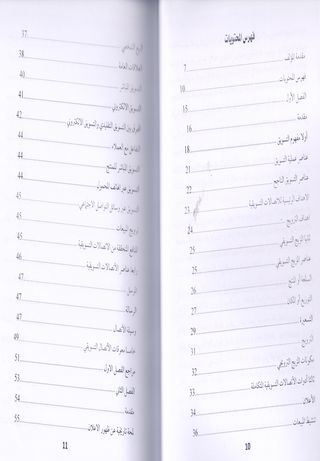 فهرس المحتويات
مقدمة المؤلف 7
فهرس المحتويات 10
الفصل الأول 15
مقدمة 16
أولا مفهوم التسويق 18
عناصر عملية التسويق 21
عناصر التسويق الناجح 22
الاهداف الرئيسية للاتصالات التسويقية 23
اهداف الترويج 24
مزايا المزيج التسويقي 25
عناصر المزيج التسويقي 25
السلعة أو المنتج 26
التوزيع أو المكان 27
التسعيرة 29
الترويج 31
مكونات المزيج الترويجي 32
ثالثا أدوات الأتصالات التسويقية المتكاملة 33
الأعلان 34
تنشيط المبيعات 36
10
البيع الشخصي 37
العلاقات العامة 38
التسويق المباشر 40
التسويق الالكتروني 41
الفرق بين التسويق التقليدي والتسويق الالكتروني 42
التفاعل مع العملاء 44
التسويق المباشر للمنتج 44
التسويق عبر الهاتف المحمول 44
التسويق عبر وسائل التواصل الاجتماعي 45
ترويج المبيعات 45
المنافع المتحققة من الاتصالات التسويقية 45
رابعا عناصر الأتصالات التسويقية 46
المرسل 47
الرسالة 47
وسيلة الأتصال 47
خامسا معوقات الأتصال التسويقي 49
مراجع الفصل الاول 51
الفصل الثاني 53
مقدمة 54
لمحة تاريخية عن ظهور الاعلان 55
11